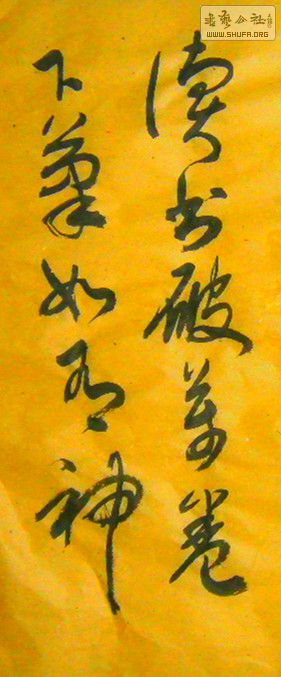 讀书破萬卷
下筆如有神
書藝公社
WWW.SHUFA.ORG